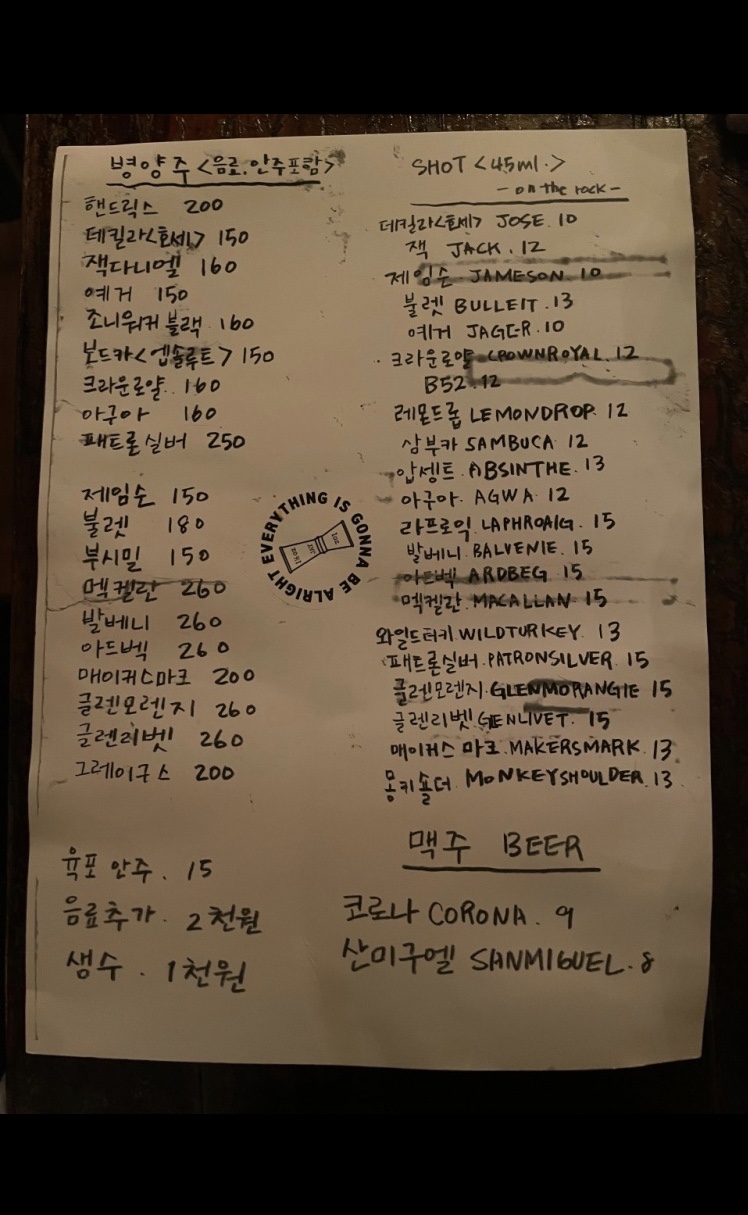 병양주<음료.안주포함>
핸드릭스 200
데킬라<호세> 150
잭다니엘 160
예거 150
조니워커 블랙 160
보드카<엡솔루트> 150
크라운로얄 160
아구아 160
패트론실버 250
제임슨 150
불렛 180
부시밀 150
멕켈란 260
발베니 260
아드벡 260
매이커스마크 200
글렌모렌지 260
글렌리벳 260
그레이구스 200
육포 안주. 15
음료추가. 2천원
생수. 1천원
EVERYTHING IS GONNA BE ALRIGHT
SHOT <45ml.>
- on the rock -
데킬라<호세> JOSE. 10
잭 JACK. 12
제임슨 JAMESON 10
불렛 BULLEIT. 13
예거 JAGER. 10
크라운로얄 CROWNROYAL. 12
B52. 12
레몬드롭 LEMONDROP. 12
삼부카 SAMBUCA 12
압셍트. ABSINTHE. 13
아구아. AGWA 12
라프로익. LAPHROAIG. 15
발베니. BALVENIE. 15
아드벡 ARDBEG 15
멕켈란. MACALLAN 15
와일드터키. WILDTURKEY. 13
패트론실버. PATRONSILVER. 15
글렌모렌지. GLENMORANGIE 15
글렌리벳 GLENLIVET. 15
매이커스 마크. MAKERSMARK. 13
몽키숄더. MONKEYSHOULDER. 13
맥주 BEER
코로나 CORONA. 9
산미구엘 SANMIGUEL. 8